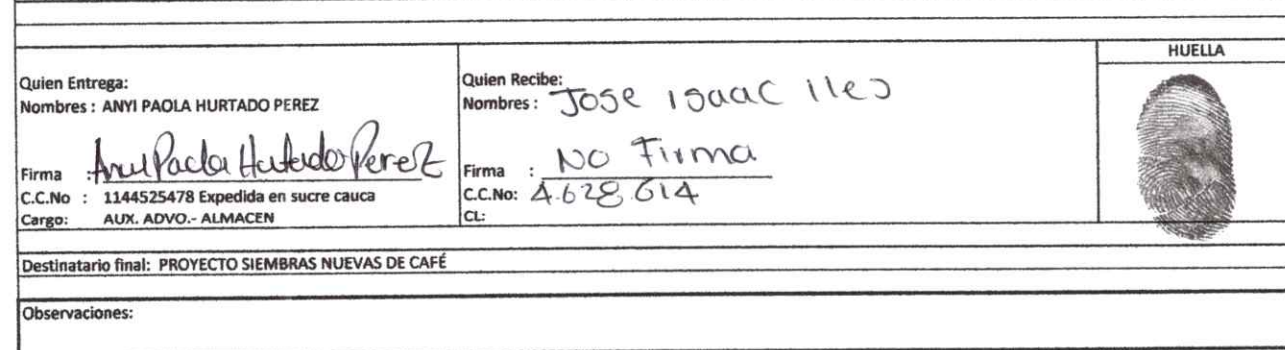 HUELLA
Quien Entrega:
Nombres : ANYI PAOLA HURTADO PEREZ
Firma : Anyi Paola Hurtado Perez
C.C.No : 1144525478 Expedida en sucre cauca
Cargo: AUX. ADVO.- ALMACEN
Quien Recibe:
Nombres : Jose isaac iles
Firma : No Firma
C.C.No: 4.628.614
CL:
Destinatario final: PROYECTO SIEMBRAS NUEVAS DE CAFÉ
Observaciones: